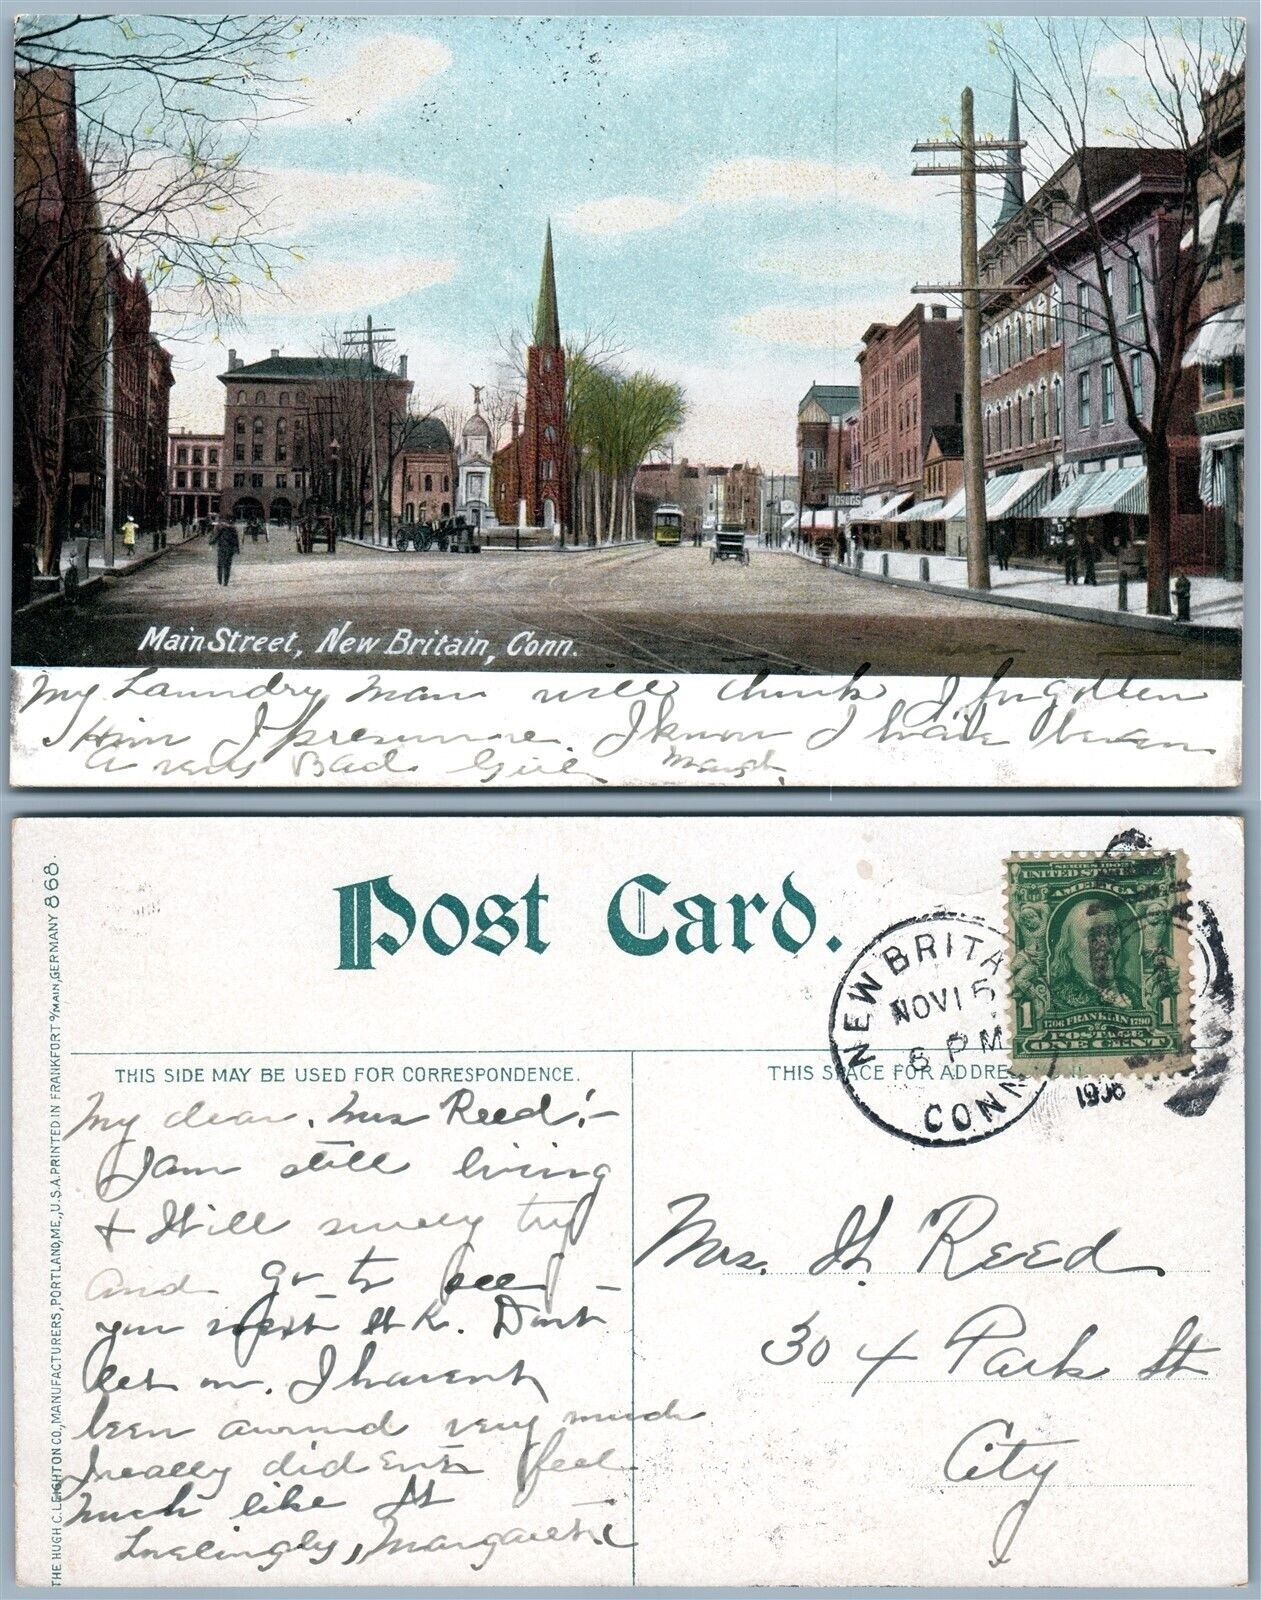 DRUGS
Main Street, New Britain, Conn.
My Laundry man will think I forgotten
Him I presume. I know I have been
a very Bad Girl Marg.
THE HUGH C. LEIGHTON CO., MANUFACTURERS, PORTLAND, ME., U.S.A. PRINTED IN FRANKFORT O/MAIN, GERMANY 868.
Post Card.
NEW BRITA
NOV 15
6 PM
CONN
1906
SERIES 1902
UNITED STATES
AMERICA
1 1
1706 FRANKLIN 1790
POSTAGE
ONE CENT
THIS SIDE MAY BE USED FOR CORRESPONDENCE.
THIS SPACE FOR ADDRE
My dear, Mrs Reed:-
I am still living
& Will surely try
and go to see
you next wk. Dont
let on. I havent
been around very much
I really did ent feel
much like it
Lovingly, Margarethe
Mrs. H. Reed
304 Park St
City